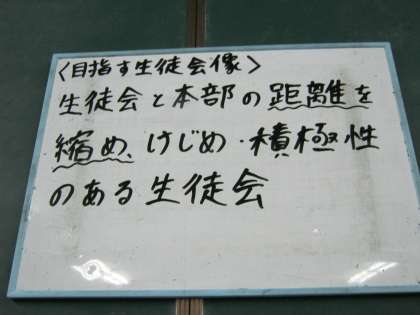 〈目指す生徒会像〉
生徒会と本部の距離を
縮め、けじめ・積極性
のある生徒会